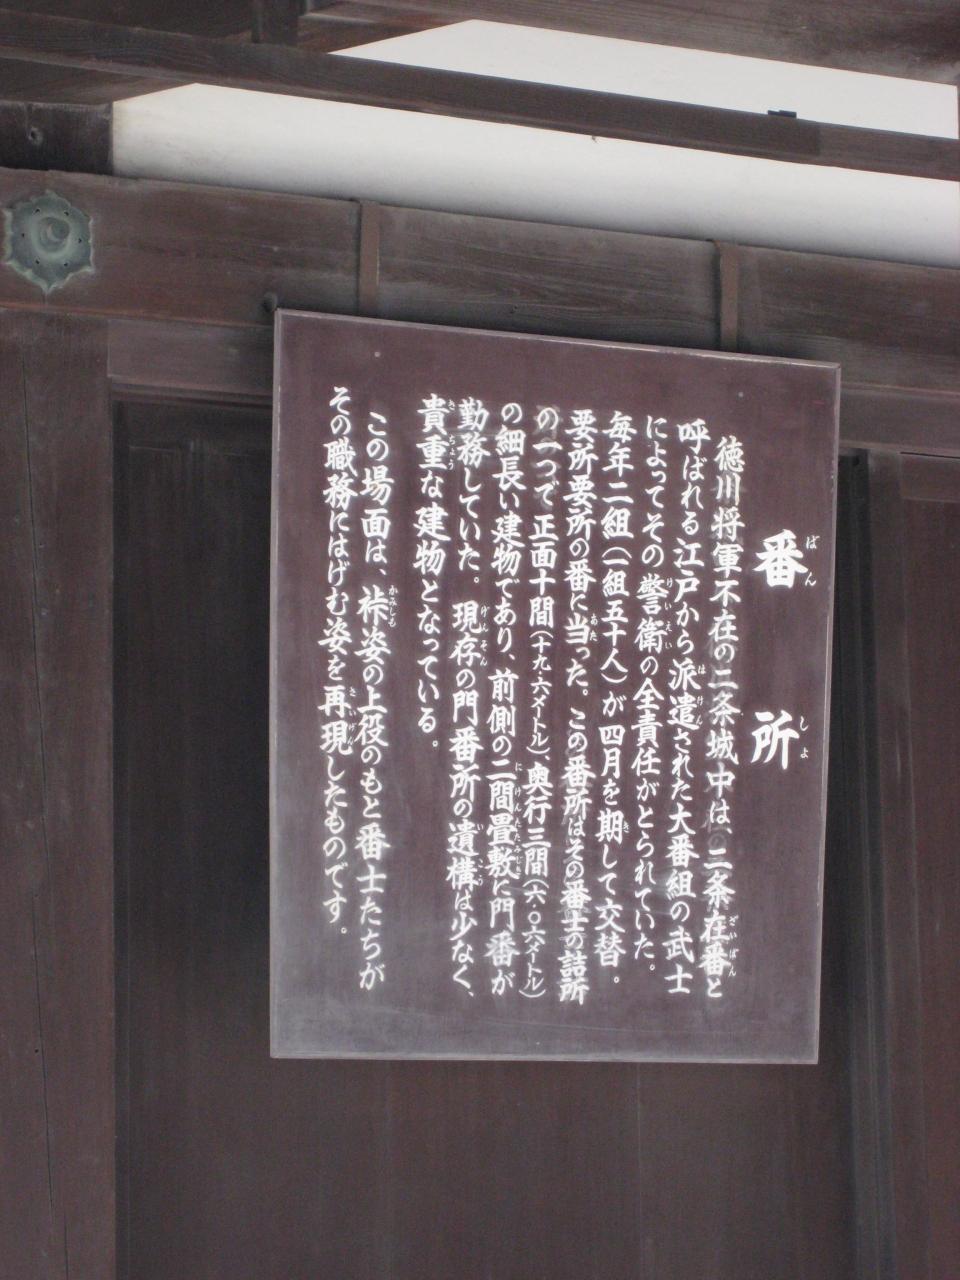 番所
徳川将軍不在の二条城中は、二条在番と
呼ばれる江戸から派遣された大番組の武士
によってその警衛の全責任がとられていた。
毎年二組(一組五十人)が四月を期して交替。
要所要所の番に当った。この番所はその番士の詰所
の一つで正面十間(十九・六メートル)、奥行三間(六・〇六メートル)
の細長い建物であり、前側の二間畳敷に門番が
勤務していた。現存の門番所の遺構は少なく、
貴重な建物となっている。
この場面は、裃姿の上役のもと番士たちが
その職務にはげむ姿を再現したものです。